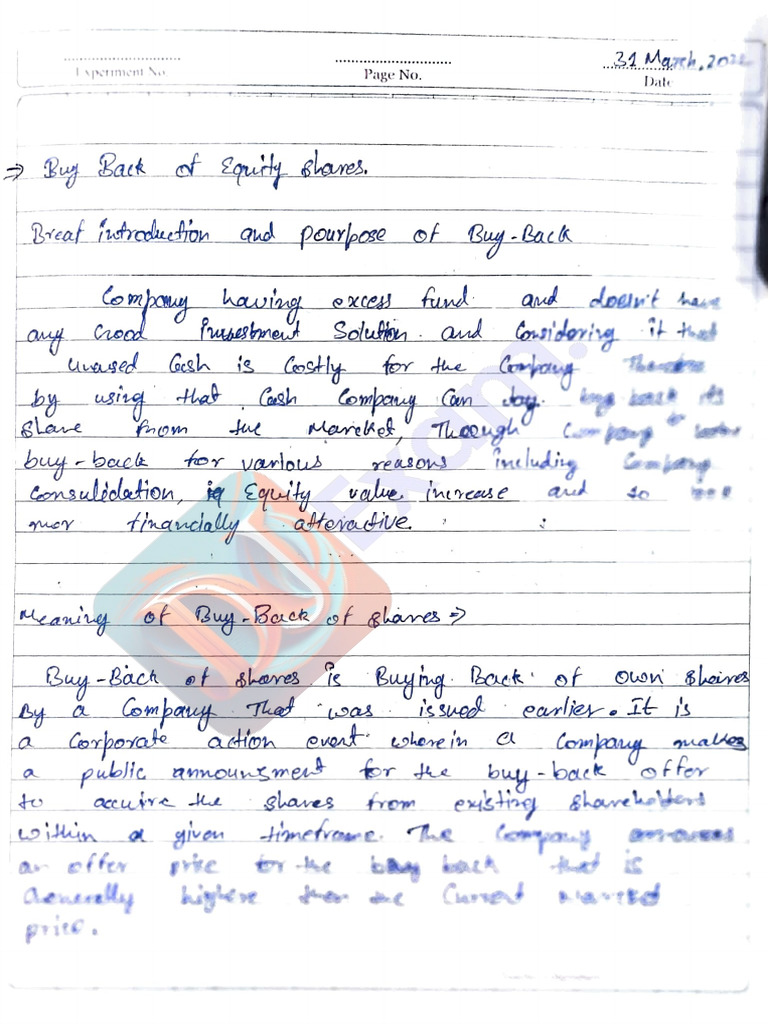 31 March, 2022
Experiment No.
Page No.
Date
⇒ Buy Back of Equity shares.
Breaf introduction and pourpose of Buy-Back
Company having excess fund and doesn't have
any Good Investment Solution and Considering it that
unused Cash is Costly for the Company
by using that Cash Company Can buy back its
share from the Marcket, Though Company
buy-back for various reasons including Company
Consulidation, Equity value increase and so
mor financially atteractive.
Meaning of Buy-Back of shares ⇒
Buy-Back of shares is Buying Back of own shares
By a Company That was issued earlier. It is
a Corporate action event wherein a Company makes
a public announsment for the buy-back offer
to accuire the shares from existing shareholders
within a given timeframe. The Company
an offer price for the buy back that is
Generally highere then the Current Marcket
price.
DJ Exam.